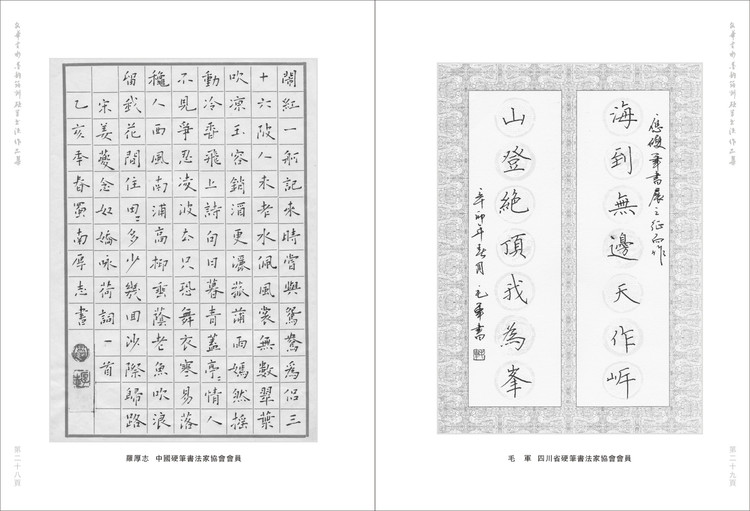 鬧紅一舸記來時嘗與鴛鴦為侶三
十六陂人未老水佩風裳無數翠葉
吹涼玉容銷酒更灑菰蒲雨嫣然搖
動冷香飛上詩句日暮青蓋亭〻情人
不見爭忍凌波去只恐舞衣寒易落
穐入西風南浦高柳垂蔭老魚吹浪
留我花間住田〻多少幾回沙際歸路
宋姜夔念奴嬌詠荷詞一首
乙亥季春蜀南厚志書
羅厚志 中國硬筆書法家協會會員
第二十八頁
海到無邊天作岸
軍書展之征而作
山登絕頂我為峯
辛卯年春月 毛軍書
毛 軍 四川省硬筆書法家協會會員
第二十九頁